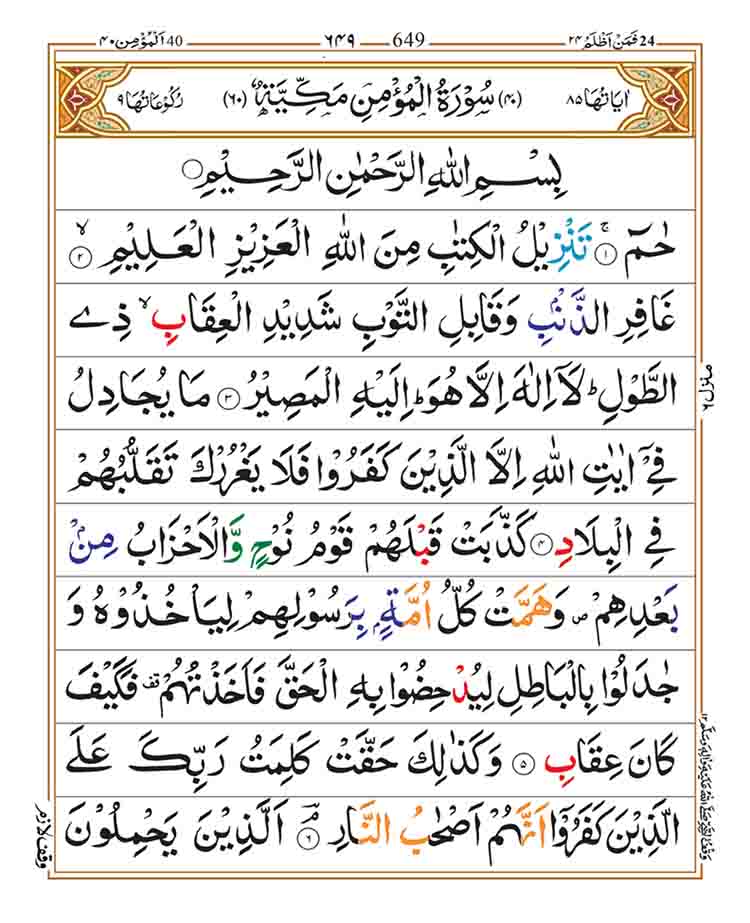 فَمَنْ اَظْلَمُ ۲۴ 24 649 ۶۴۹ 40 اَلْمُؤْمِن ۴۰
اٰيَاتُهَا ۸۵ (۴۰) سُوْرَةُ الْمُؤْمِنِ مَكِّيَّةٌ (۶۰) رُكُوْعَاتُهَا ۹
بِسْمِ اللّٰهِ الرَّحْمٰنِ الرَّحِيْمِ
حٰمٓ ۚ‏ ۱ تَنْزِيْلُ الْكِتٰبِ مِنَ اللّٰهِ الْعَزِيْزِ الْعَلِيْمِ ۙ‏ ۲
غَافِرِ الذَّنْۢبِ وَقَابِلِ التَّوْبِ شَدِيْدِ الْعِقَابِ ۙ ذِى
الطَّوْلِ ؕ لَاۤ اِلٰهَ اِلَّا هُوَ ؕ اِلَيْهِ الْمَصِيْرُ ۳ مَا يُجَادِلُ
فِىْۤ اٰيٰتِ اللّٰهِ اِلَّا الَّذِيْنَ كَفَرُوْا فَلَا يَغْرُرْكَ تَقَلُّبُهُمْ
فِى الْبِلَادِ ۴ كَذَّبَتْ قَبْلَهُمْ قَوْمُ نُوْحٍ وَّالْاَحْزَابُ مِنْۢ
بَعْدِهِمْ ۪ وَهَمَّتْ كُلُّ اُمَّةٍۢ بِرَسُوْلِهِمْ لِيَاْخُذُوْهُ وَ
جٰدَلُوْا بِالْبَاطِلِ لِيُدْحِضُوْا بِهِ الْحَقَّ فَاَخَذْتُهُمْ قف فَكَيْفَ
كَانَ عِقَابِ ۵ وَكَذٰلِكَ حَقَّتْ كَلِمَتُ رَبِّكَ عَلَى
الَّذِيْنَ كَفَرُوْۤا اَنَّهُمْ اَصْحٰبُ النَّارِ ۘ ۶ اَلَّذِيْنَ يَحْمِلُوْنَ
منزل ۶
وقف النبي صلى الله عليه واله وسلم ۱۲
وقف لازم